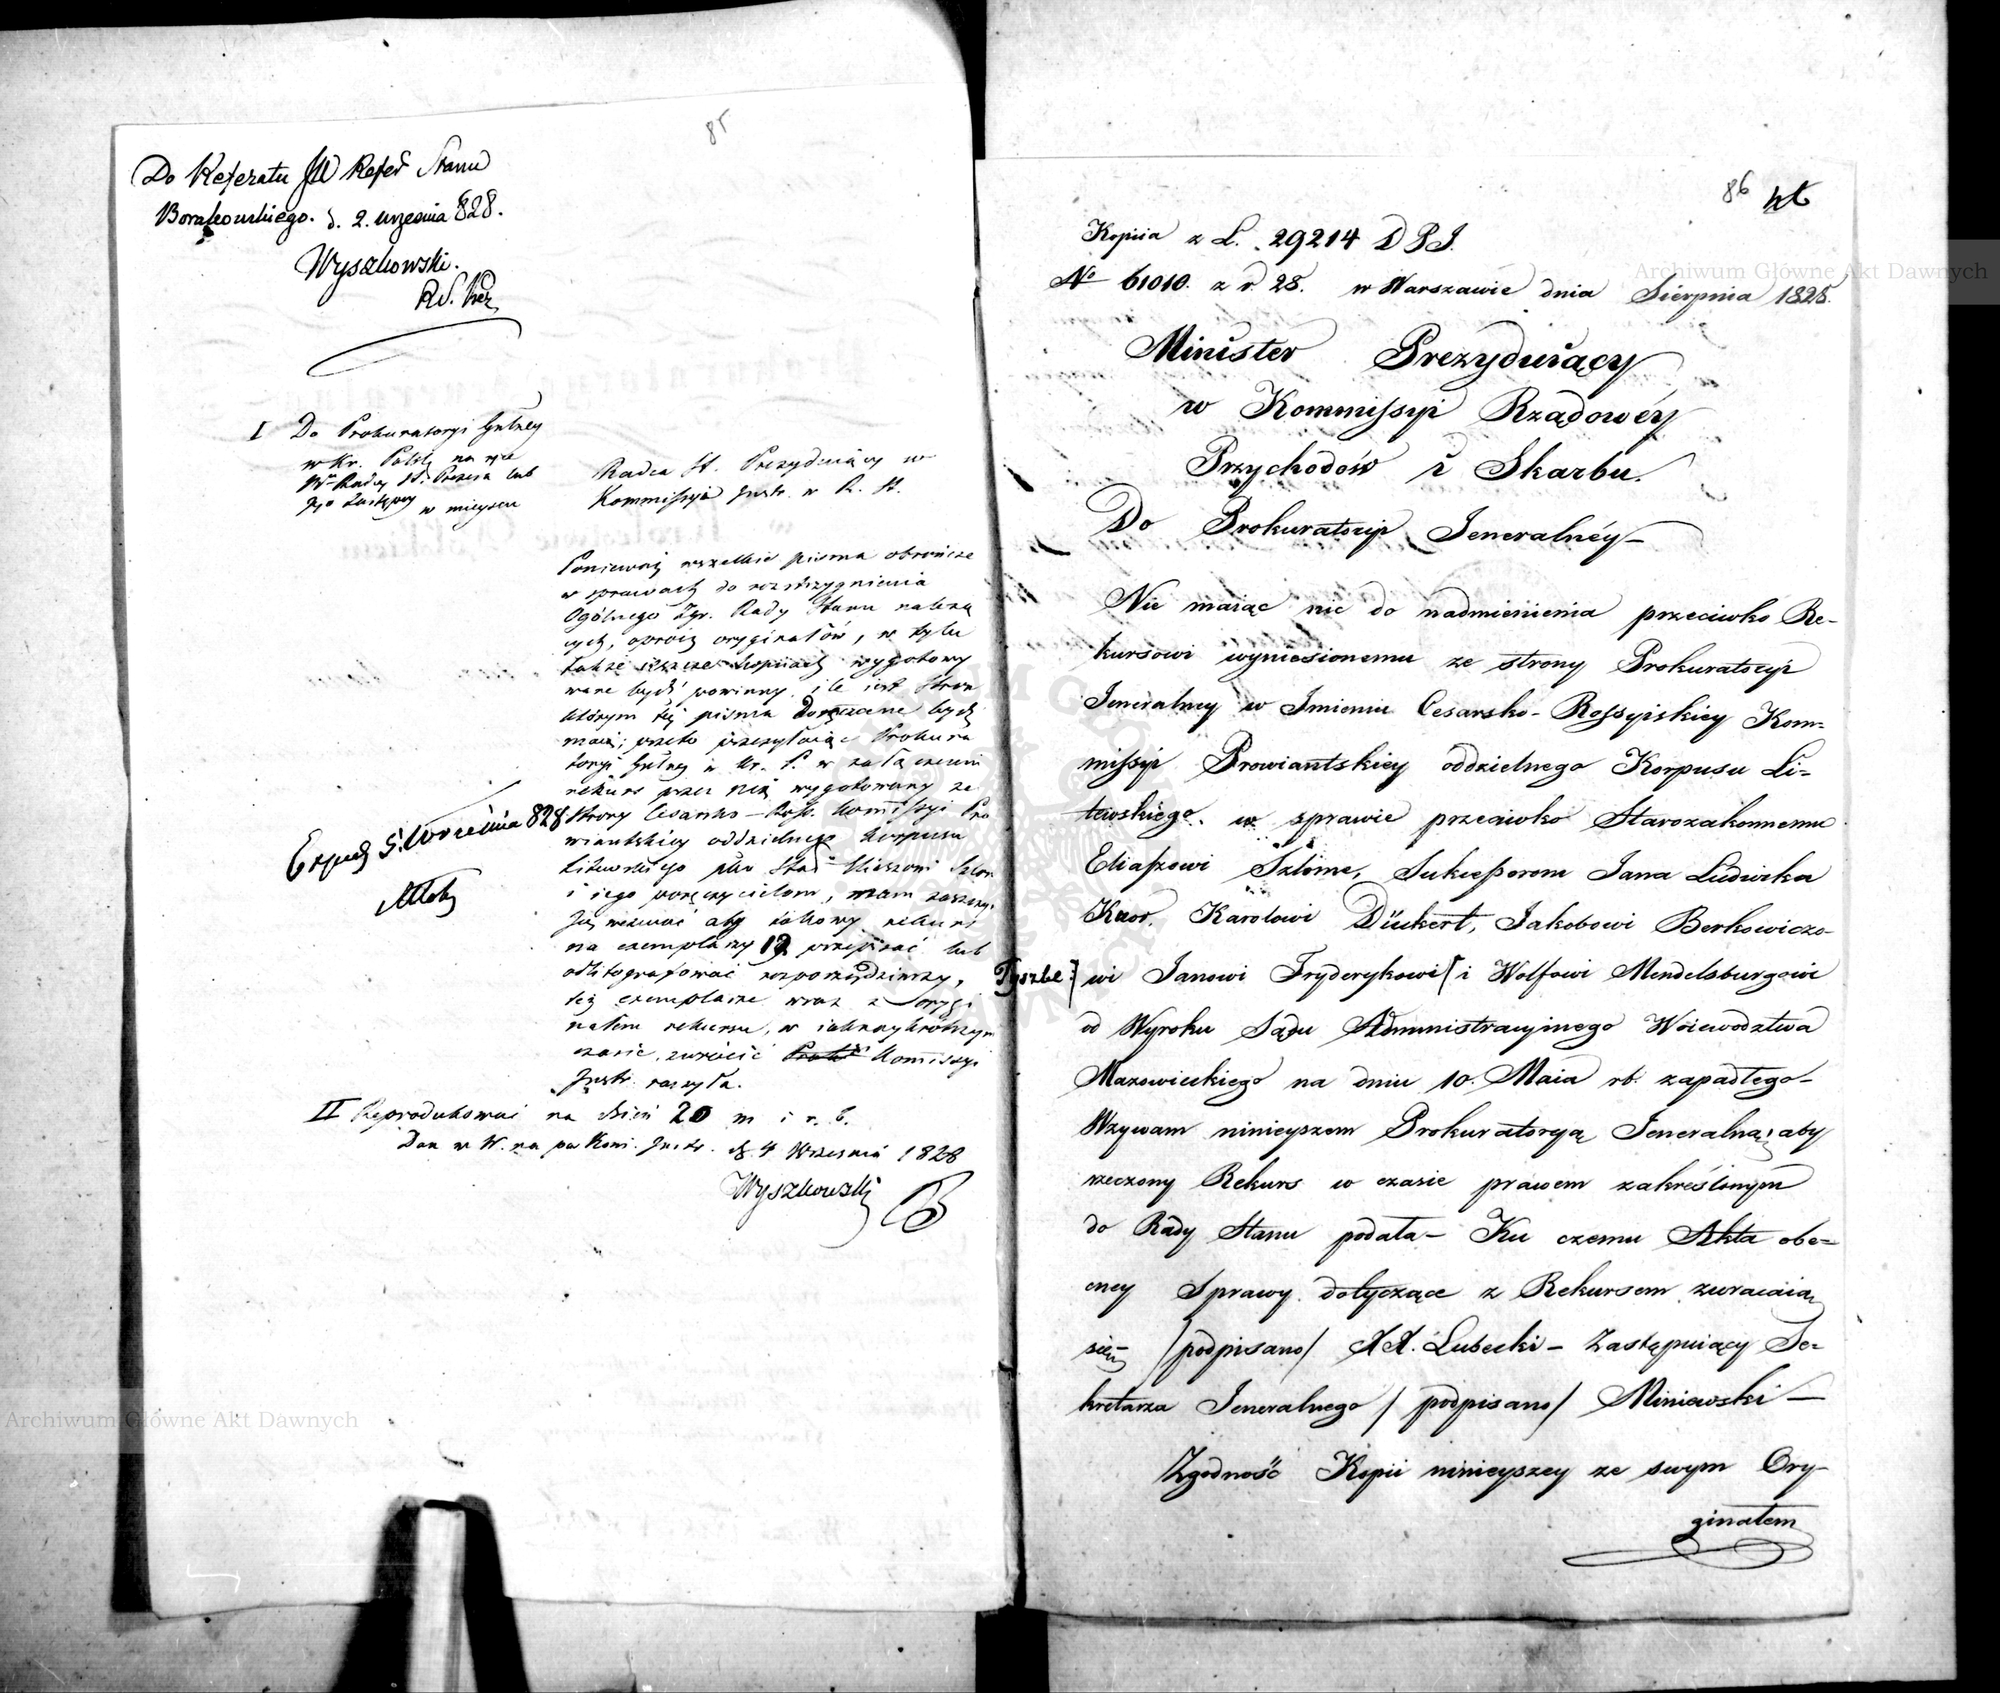 85
Do Referatu JW Refer Stanu
Borakowskiego. d. 2. września 828.
Wyszkowski.
I Do Prokuratoryi Gnlney
w Kr. Polsk na ręce
Wo Radcy St. Prezesa lub
Jego Zastępcy w mieyscu
Radca St. Prezyduiący w
Kommissyi Instr. w R. St.
Ponieważ wszelkie pisma obrończe
w sprawach do rozstrzygnienia
Ogólnego Zgr. Rady Stanu należą
cych, oprócz oryginałów, w tylu
także kopiiach wygotowy
wane bydź powinny, ile iest stron
którym téż pisma doręczane bydź
maią; przeto przesyłaiąc Prokura
toryi Gnlney w Kr. P. w załączeniu
rekurs przez nią wygotowany ze
strony Cesarsko-Ross. Kommissyi Pro
wiantskiey oddzielnego Korpusu
Litewskiego plko Stard
i iego poręczycielom, mam zaszczyt
Ją wezwać aby takowy rekurs
na exemplarzy 12 przepisać lub
odlitografować rozporządziwszy,
też exemplarze wraz z orygi
nałem rekursu, w iaknaykrótszym
czasie, zwrócić Kommissyi
Instr. raczyła.
Exped 5. Września 828
II Reprodukować na dzień 20 m i r. b.
Dan w W. na po Kom. Instr. d. 4 Września 1828
Wyszkowski
86
Kopiia z L. 29214 D P J.
No 61010. z r. 28. w Warszawie dnia Sierpnia 1828.
Minister Prezyduiący
w Kommissyi Rządowéy
Przychodów i Skarbu.
Do Prokuratoryi Jeneralnéy
Nie maiąc nic do nadmienienia przeciwko Re-
kursowi wyniesionemu ze strony Prokuratoryi
Jeneralney w Imieniu Cesarsko-Rossyiskiey Kom-
missyi Prowiantskiey oddzielnego Korpusu Li-
tewskiego. w sprawie przeciwko Starozakonnemu
Eliaszowi Szlome, Sukcessorom Jana Ludwika
Knor, Karolowi Dückert, Jakobowi Berkowiczo-
Tyszke] wi Janowi Fryderykowi [ i Wolfowi Mendelsburgowi
od Wyroku Sądu Administracyinego Woiewodztwa
Mazowieckiego na dniu 10. Maia rb. zapadłego-
Wzywam ninieyszem Prokuratoryą Jeneralną, aby
rzeczony Rekurs w czasie prawem zakreślonym
do Rady Stanu podała- Ku czemu Akta obe-
cney Sprawy dotyczące z Rekursem zwracaią
się /podpisano/ X X. Lubecki - Zastępuiący Se-
kretarza Jeneralnego /podpisano/ Miniewski -
Zgodność Kopii ninieyszey ze swym Ory-
ginałem
Archiwum Główne Akt Dawnych
Archiwum Główne Akt Dawnych